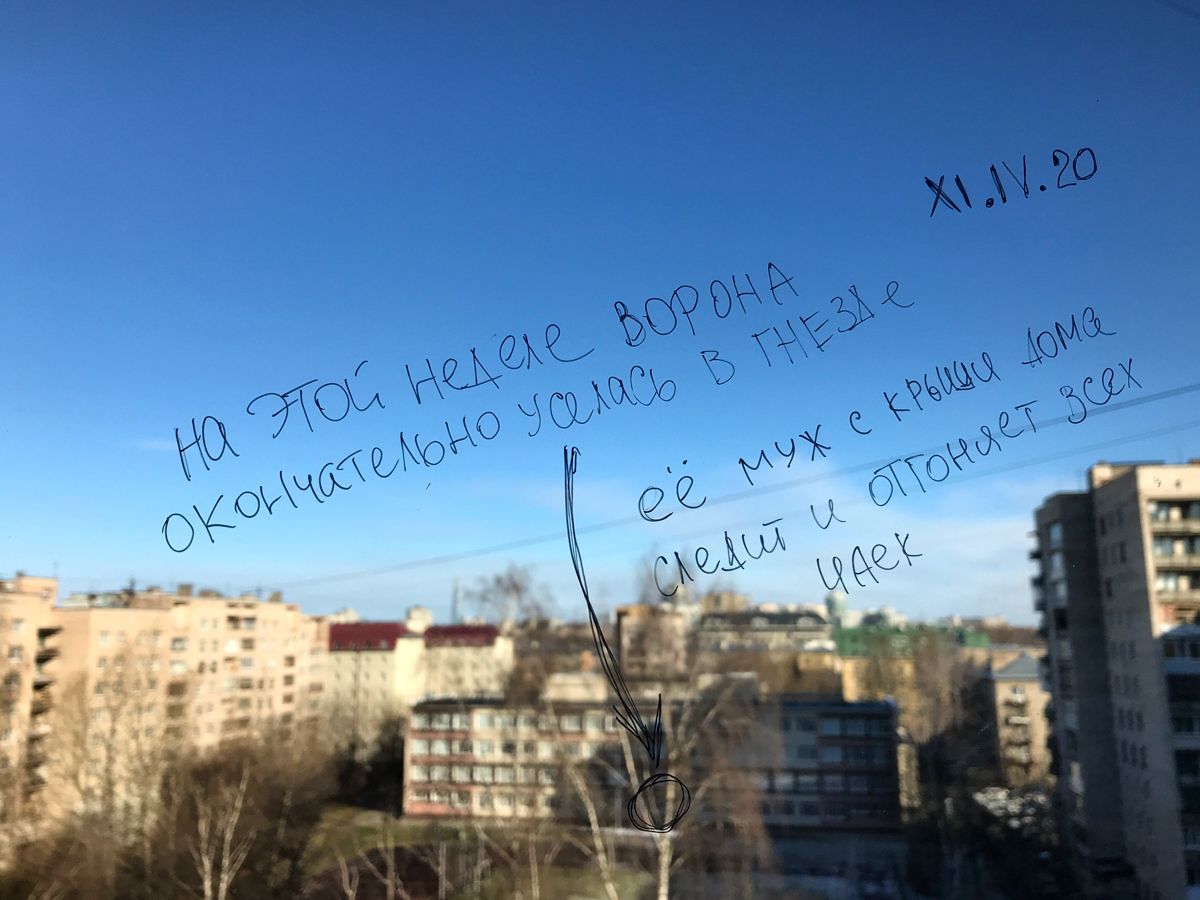 XI.IV.20
НА ЭТОЙ НЕДЕЛЕ ВОРОНА
ОКОНЧАТЕЛЬНО УСЕЛАСЬ В ГНЕЗДЕ
ЕЁ МУЖ С КРЫШИ ДОМА
СЛЕДИТ И ОТГОНЯЕТ ВСЕХ
ЧАЕК